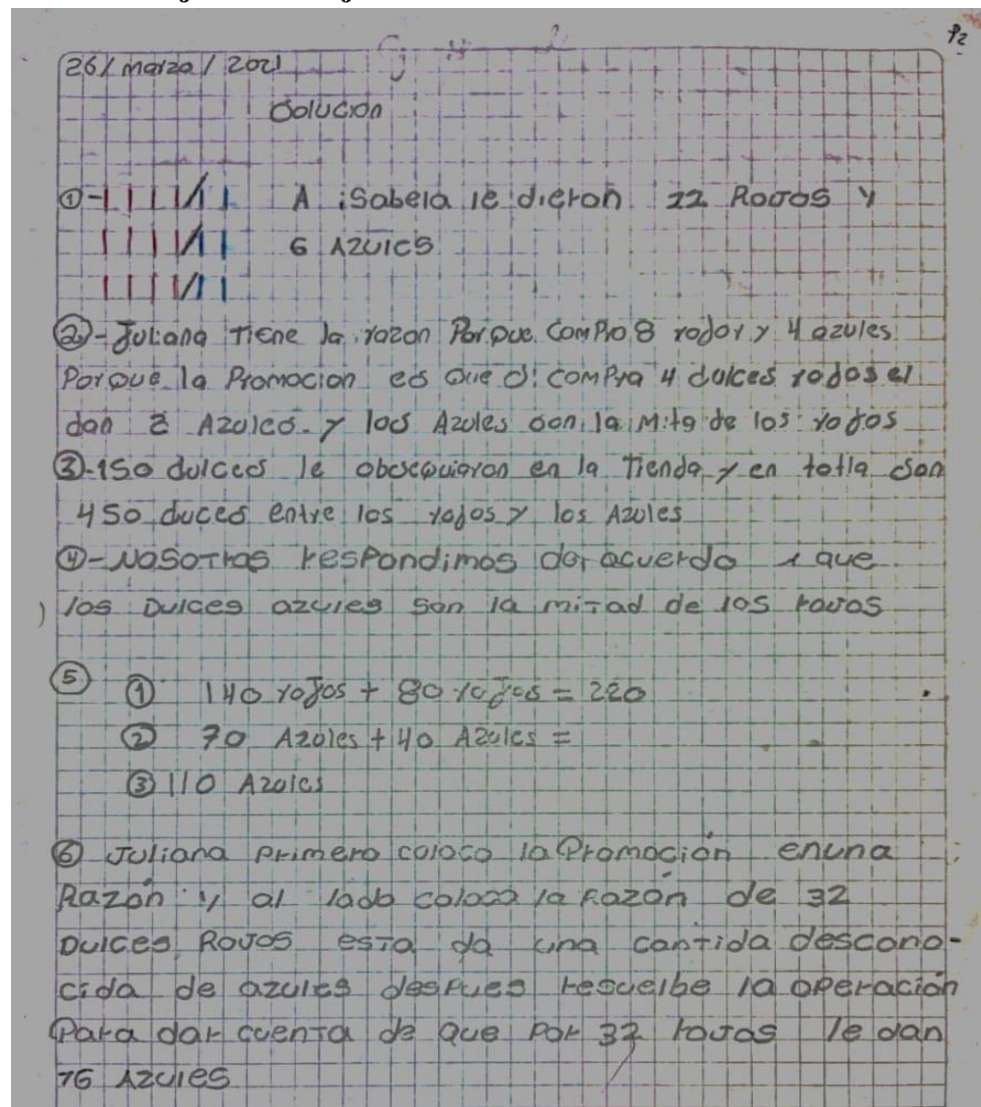 P2
26/marzo/2021
Solucion
①- A isabela le dieron 22 Rojos y
6 Azules
②- Juliana Tiene la razon Porque comPro 8 rojor y 4 azules
Porque la Promocion es Que si comPra 4 dulces rojos el
dan 2 Azules. y los Azules son la Mitg de los rojos
③-150 dulces le obsequiaron en la Tienda y en totla son
450 duces entre los rojos y los Azules
④-Nosotras resPondimos de acuerdo a que
los Dulces azules son la mitad de los rojos
⑤ ① 140 rojos + 80 rojos = 220
② 70 Azules + 40 Azules =
③ 110 Azules
⑥ Juliana Primero coloco la Promoción enuna
Razón y al lado coloco la Razón de 32
Dulces Rojos esta da una cantida descono-
cida de azules desPues resuelbe la oPeración
Para dar cuenta de que Por 32 rojos le dan
16 Azules